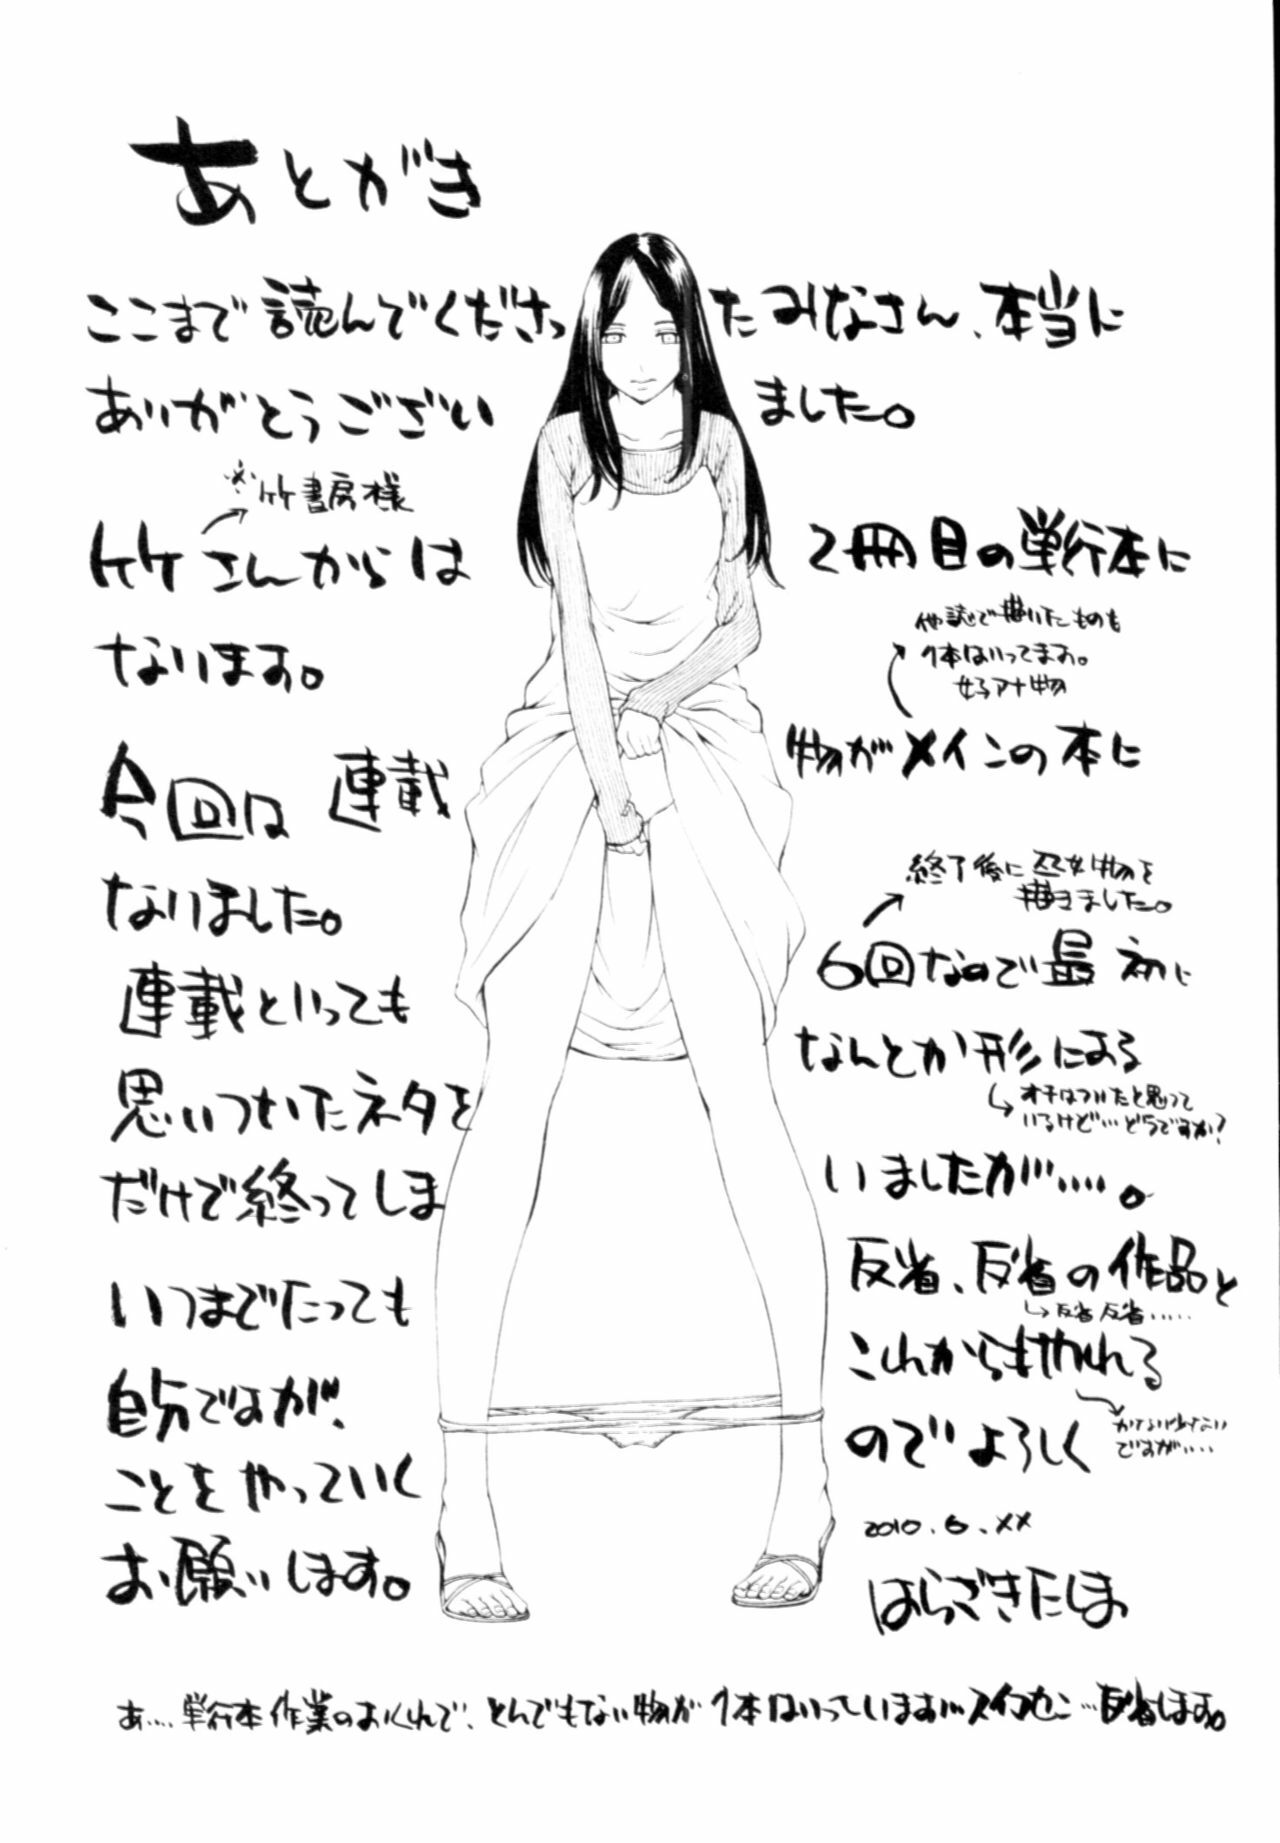 あとがき
ここまで読んでくださったみなさん、本当に
ありがとうございました。
※竹書房様
竹さんからは2冊目の単行本に
なります。
他誌で描いたものも
1本はいってます。
女子アナ物
今回は連載物がメインの本に
なりました。
終了後に巫女物を
描きました。
連載といっても6回なので最初に
思いついたネタをなんとか形にする
オチはついたと思って
いるけど…どうですか?
だけで終ってしまいましたが…。
いつまでたっても反省、反省の作品と
反省反省……
自分ですが、これからもやれる
かなり少ない
ですが……
ことをやっていくのでよろしく
お願いします。
2010.6.××
はらざきたくま
あ…単行本作業のおくれで、とんでもない物が1本はいっています…スイマセン…反省します。